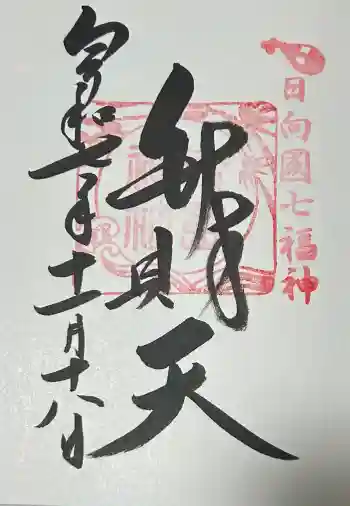 日向國七福神
辨財天
令和七年十一月十八日